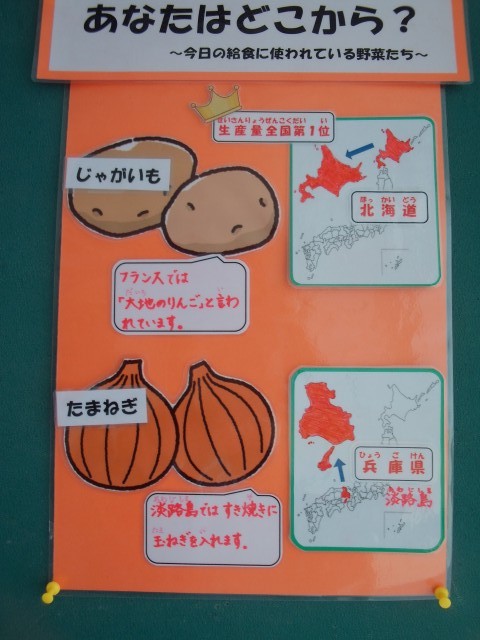 あなたはどこから？
～今日の給食に使われている野菜たち～
せいさんりょうぜんこくだい い
生産量全国第1位
じゃがいも
ほっ かい どう
北海道
フランスでは
だいち い
「大地のりんご」と言わ
れています。
たまねぎ
ひょう ご けん
兵庫県
あわじしま
淡路島
あわじしま す や
淡路島では すき焼きに
たま い
玉ねぎを入れます。